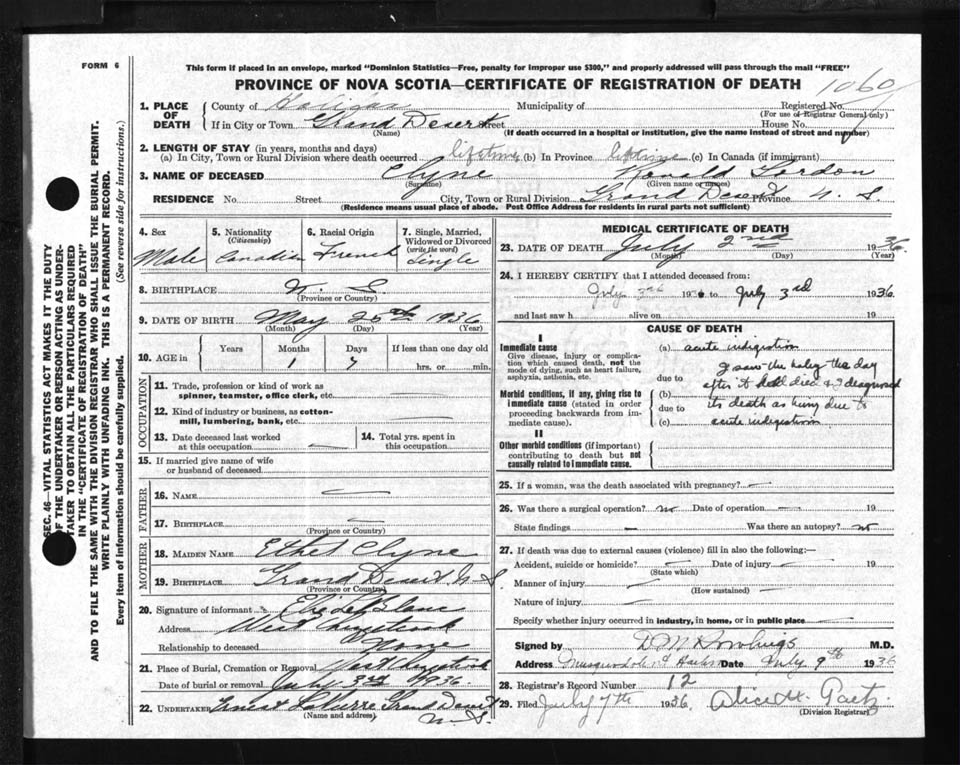 FORM 6
This form if placed in an envelope, marked "Dominion Statistics—Free, penalty for improper use $300," and properly addressed will pass through the mail "FREE"
PROVINCE OF NOVA SCOTIA—CERTIFICATE OF REGISTRATION OF DEATH
1060
1. PLACE OF DEATH
County of Halifax Municipality of Registered No.
(For use of Registrar General only)
If in City or Town Grand Desert Street House No.
(Name) (If death occurred in a hospital or institution, give the name instead of street and number)
2. LENGTH OF STAY (in years, months and days)
(a) In City, Town or Rural Division where death occurred lifetime (b) In Province lifetime (c) In Canada (if immigrant)
3. NAME OF DECEASED Clyne Ronald Gordon
(Surname) (Given name or names)
RESIDENCE No. Street City, Town or Rural Division Grand Desert Province N. S.
(Residence means usual place of abode. Post Office Address for residents in rural parts not sufficient)
4. Sex
Male
5. Nationality
(Citizenship)
Canadian
6. Racial Origin
French
7. Single, Married, Widowed or Divorced
(write the word)
Single
8. BIRTHPLACE N. S.
(Province or Country)
9. DATE OF BIRTH May 25th 1936
(Month) (Day) (Year)
10. AGE in Years Months Days If less than one day old
1 7 hrs. or min.
OCCUPATION
11. Trade, profession or kind of work as spinner, teamster, office clerk, etc.
12. Kind of industry or business, as cotton-mill, lumbering, bank, etc.
13. Date deceased last worked at this occupation
14. Total yrs. spent in this occupation
15. If married give name of wife or husband of deceased
FATHER
16. NAME
17. BIRTHPLACE
(Province or Country)
MOTHER
18. MAIDEN NAME Ethel Clyne
19. BIRTHPLACE Grand Desert N. S.
(Province or Country)
20. Signature of informant Elie LeBlanc
Address West Chezzetcook
Relationship to deceased None
21. Place of Burial, Cremation or Removal West Chezzetcook
Date of burial or removal July 3rd 1936.
22. UNDERTAKER Ernest Grand Desert
(Name and address) N. S.
MEDICAL CERTIFICATE OF DEATH
23. DATE OF DEATH July 2nd 1936.
(Month) (Day) (Year)
24. I HEREBY CERTIFY that I attended deceased from:
July 3rd 1936 to July 3rd 1936.
and last saw h alive on 19
CAUSE OF DEATH
I
Immediate cause
Give disease, injury or complication which caused death, not the mode of dying, such as heart failure, asphyxia, asthenia, etc.
Morbid conditions, if any, giving rise to immediate cause (stated in order proceeding backwards from immediate cause).
II
Other morbid conditions (if important) contributing to death but not causally related to immediate cause.
(a) acute indigestion
due to I saw the baby the day
(b) after it had died and I diagnosed
due to its death as being due to
(c) acute indigestion
25. If a woman, was the death associated with pregnancy?
26. Was there a surgical operation? no Date of operation 19
State findings Was there an autopsy? no
27. If death was due to external causes (violence) fill in also the following:—
Accident, suicide or homicide? Date of injury 19
(State which)
Manner of injury
(How sustained)
Nature of injury
Specify whether injury occurred in industry, in home, or in public place
Signed by D M Rowlings M.D.
Address Musquodoboit Harbor Date July 9th 1936
28. Registrar's Record Number 12
29. Filed July 7th 1936. Alice M.
(Division Registrar)
SEC. 46—VITAL STATISTICS ACT MAKES IT THE DUTY
OF THE UNDERTAKER OR PERSON ACTING AS UNDER-
TAKER TO OBTAIN ALL THE PARTICULARS REQUIRED
IN THE "CERTIFICATE OF REGISTRATION OF DEATH"
AND TO FILE THE SAME WITH THE DIVISION REGISTRAR WHO SHALL ISSUE THE BURIAL PERMIT.
WRITE PLAINLY WITH UNFADING INK. THIS IS A PERMANENT RECORD.
Every item of information should be carefully supplied. (See reverse side for instructions.)